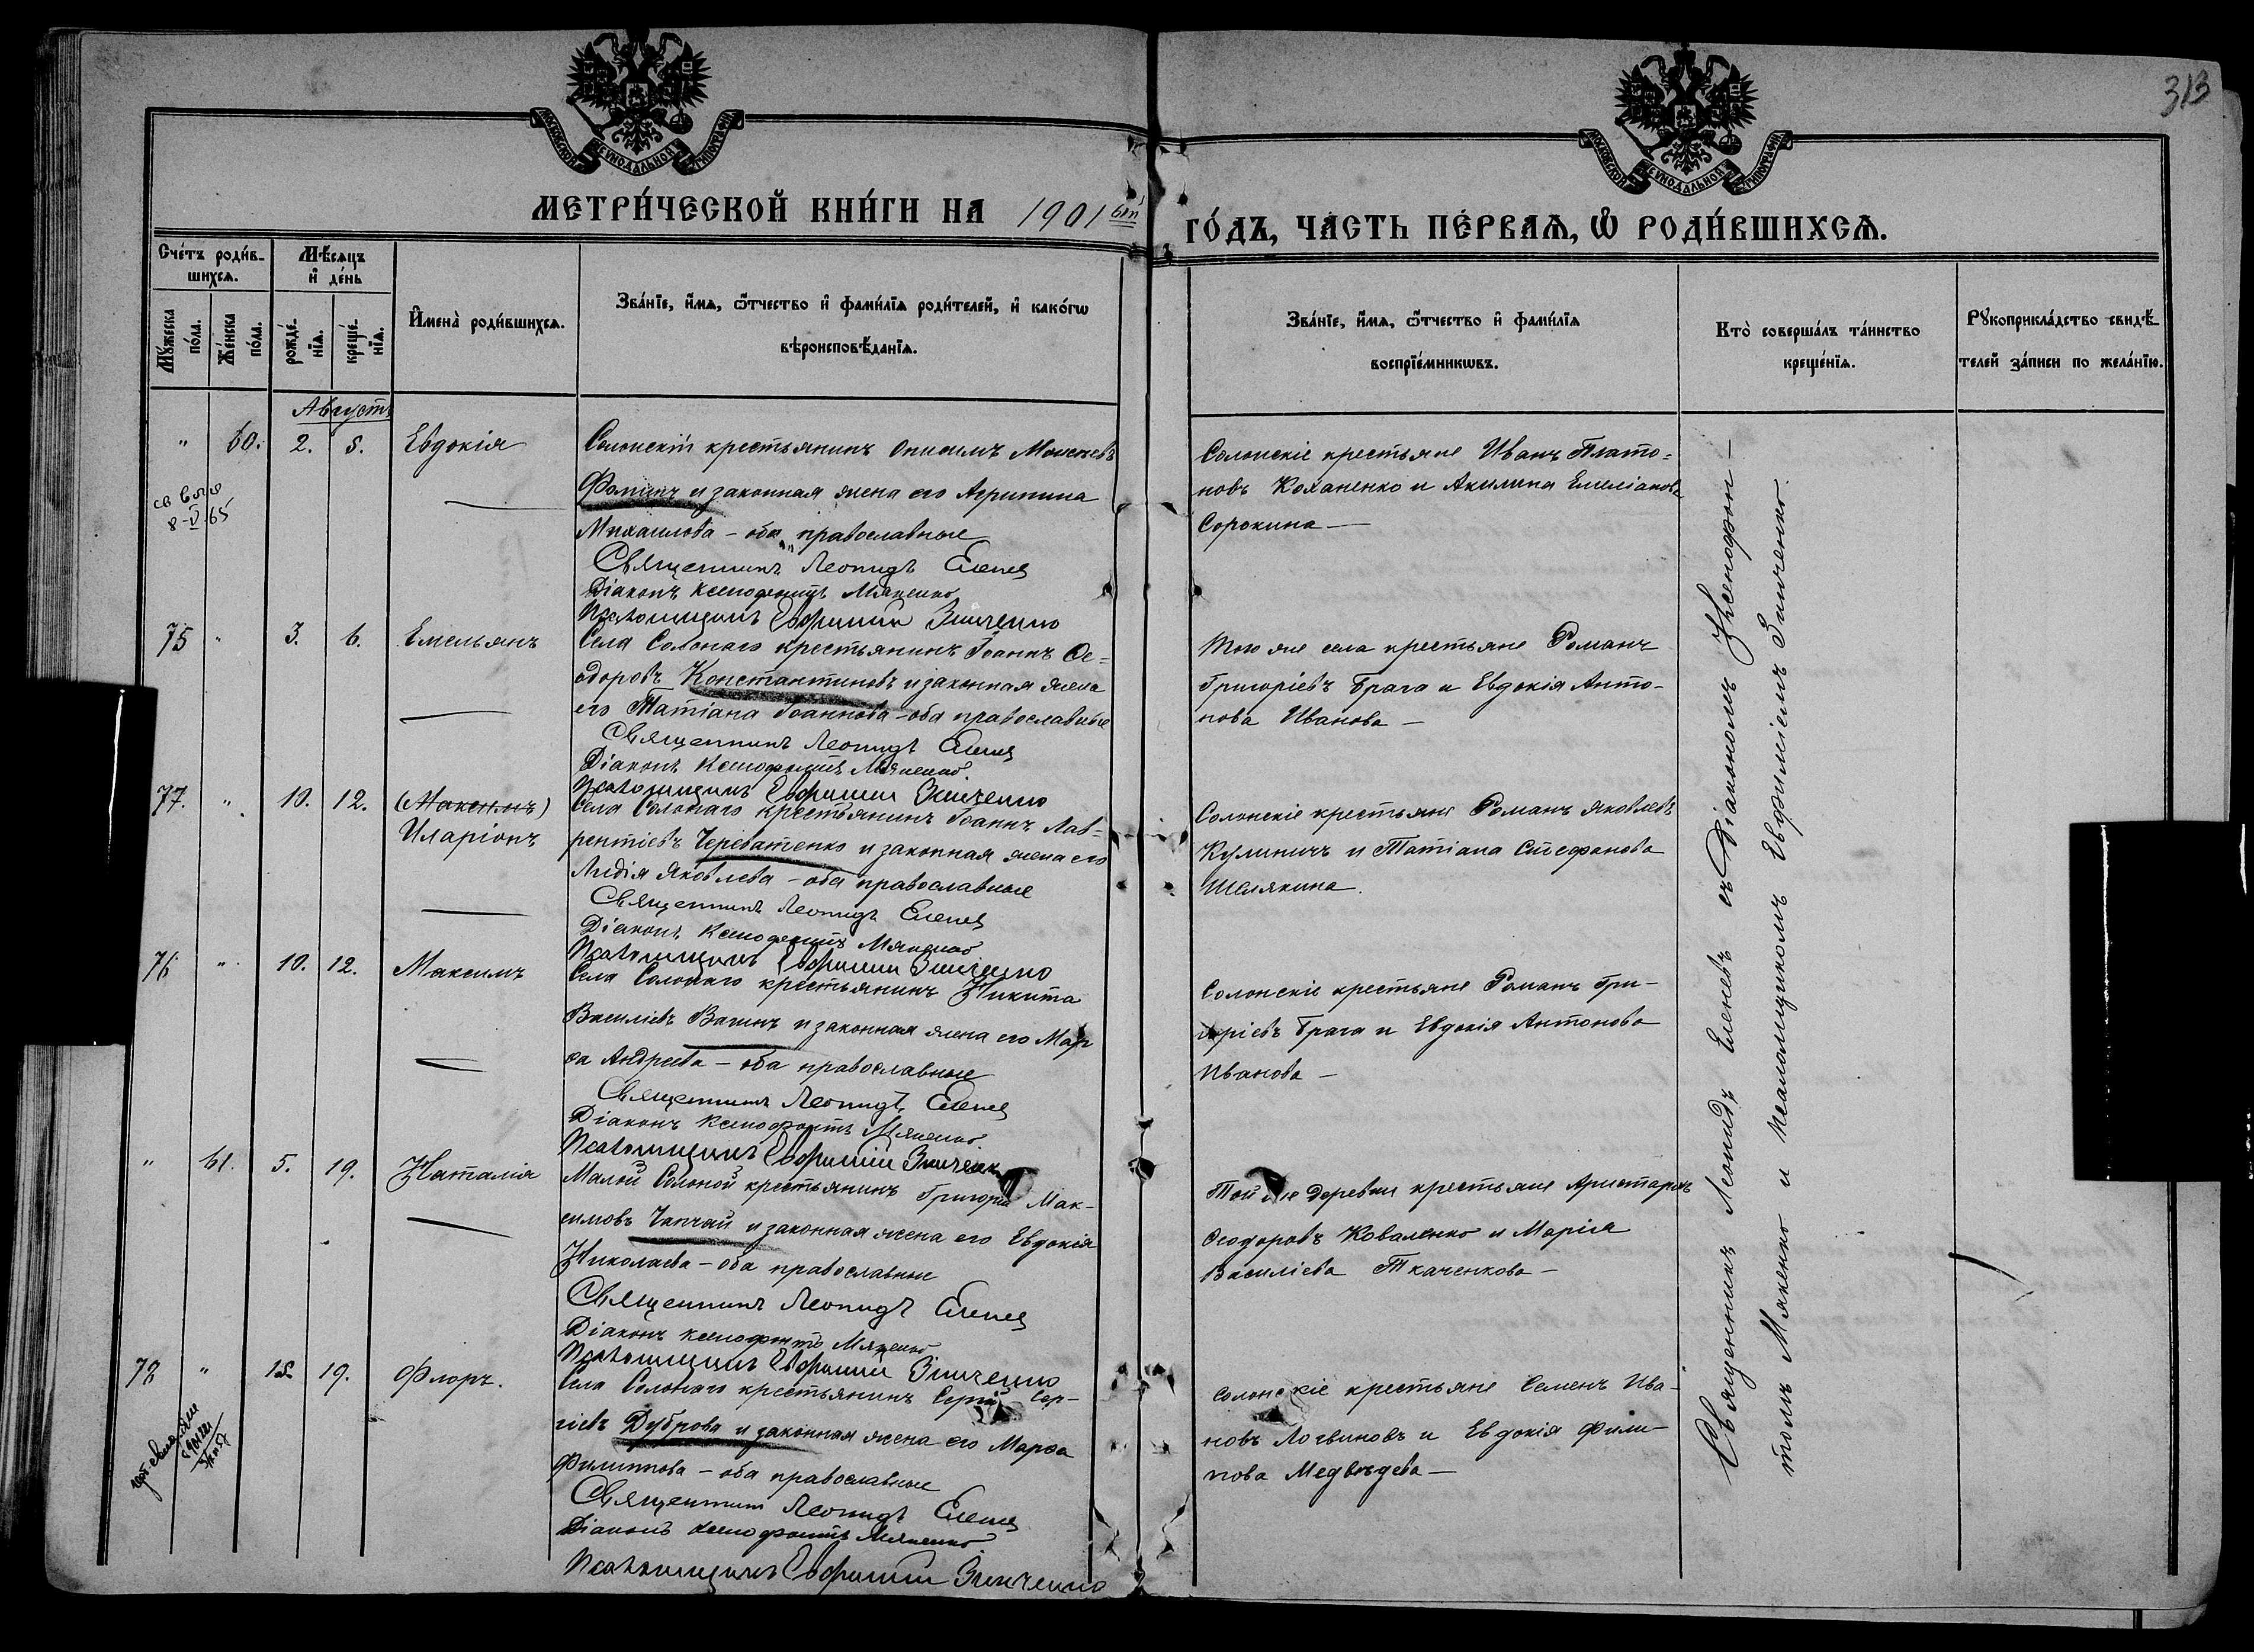 313
МОСКОВСКОЙ СѴНОДАЛЬНОЙ ТИПОГРАФІИ
МОСКОВСКОЙ СѴНОДАЛЬНОЙ ТИПОГРАФІИ
МЕТРИ́ЧЕСКОЙ КНИ́ГИ НА 1901 ый ГО́ДЪ, ЧА́СТЬ ПЕ́РВАѦ, Ѡ҆ РОДИ́ВШИХСѦ.
Сче́тъ роди́в-
шихсѧ.
Мꙋ́жеска по́ла.
Же́нска по́ла.
Мѣ́сѧцъ
и҆ де́нь
рожде́-
нїѧ.
креще́-
нїѧ.
И҆мена̀ роди́вшихсѧ.
Зва́нїе, и҆́мѧ, ѻ҆́тчество и҆ фами́лїѧ роди́телей, и҆ како́гѡ
вѣроисповѣ́данїѧ.
Зва́нїе, и҆́мѧ, ѻ҆́тчество и҆ фами́лїѧ
воспрїе́мникѡвъ.
Кто̀ соверша́лъ та́инство
креще́нїѧ.
Рꙋкоприкла́дство свидѣ́-
телей за́писи по жела́нїю.
Августъ
" 60. 2. 5. Евдокія
Солонскій крестьянинъ Онисимъ Моисеевъ
Фоминъ и законная жена его Агрипина
Михаилова - оба православные
Священникъ Леонидъ Еленев
Діаконъ Ксенофонтъ Мякенко
Псаломщикъ Евфимій Зинченко
Солонскіе крестьяне Иванъ Плато=
новъ Коханенко и Акилина Емеліанова
Сорокина —
8-V.65
75 " 3. 6. Емельянъ
Села Солонаго крестьянинъ Іоаннъ Ѳе=
одоровъ Константиновъ и законная жена
его Татіана Іоаннова - оба православные
Священникъ Леонидъ Еленев
Діаконъ Ксенофонтъ Мякенко.
Псаломщикъ Евфимій Зинченко
Того же села крестьяне Романъ
Григоріевъ Брага и Евдокія Анто-
нова Иванова —
77. " 10. 12. (Максимъ)
Иларіонъ
Села Солонаго крестьянинъ Іоаннъ Лав=
рентіевъ Череватенко и законная жена его
Лидія Яковлева - оба православные
Священникъ Леонидъ Еленев
Діаконъ Ксенофонтъ Мякенко
Псаломщикъ Евфимій Зинченко
Солонскіе крестьяне Романъ Яковлевъ
Кулиничъ и Татіана Стефанова
Шелякина.
76 " 10. 12. Максимъ
Села Солонаго крестьянинъ Никита
Василіевъ Вагинъ и законная жена его Мар
ѳа Андреева - оба православные
Священникъ Леонидъ Еленев
Діаконъ Ксенофонтъ Мякенко.
Псаломщикъ Евфимій Зинченко
Солонскіе крестьяне Романъ Гри-
горіевъ Брага и Евдокія Антонова
Иванова —
" 61. 5. 19. Наталія
Малой Солоной крестьянинъ Григорій Мак-
симовъ Чапчай и законная жена его Евдокія
Николаева - оба православные
Священникъ Леонидъ Еленев
Діаконъ Ксенофонтъ Мякенко
Псаломщикъ Евфимій Зинченко
Той же деревни крестьяне Аристархъ
Ѳеодоровъ Коваленко и Марія
Василіева Ткаченкова —
78 " 15. 19. Флоръ.
Села Солонаго крестьянинъ Сергій Сер-
гіевъ Дуброва и законная жена его Марѳа
Филиппова - оба православные
Священникъ Леонидъ Еленев
Діаконъ Ксенофонтъ Мякенко.
Псаломщикъ Евфимій Зинченко
Солонскіе крестьяне Семенъ Ива-
новъ Логвиновъ и Евдокія Фили-
пова Медвѣдева —
Священникъ Леонидъ Еленевъ съ Діакономъ Ксенофон—
томъ Мякенко и Псаломщикомъ Евфиміемъ Зинченко.